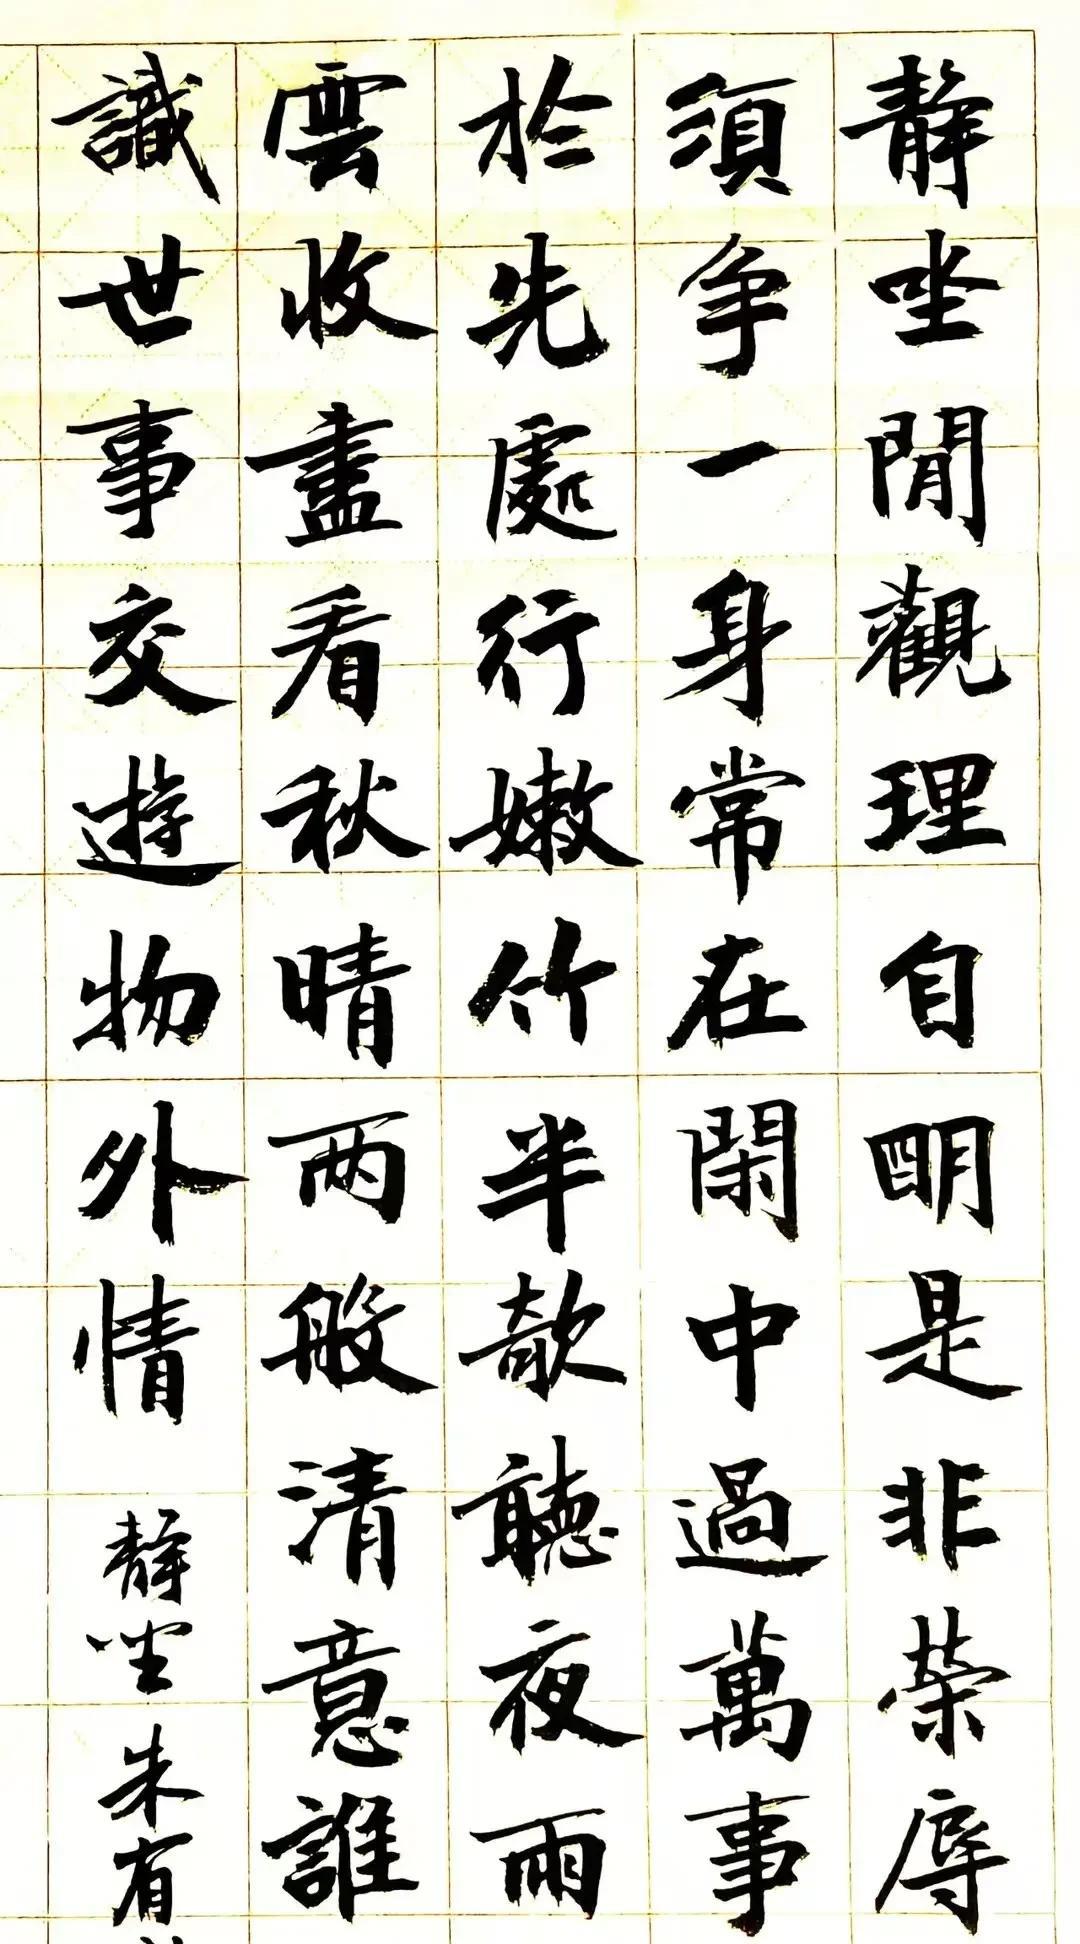 靜坐閒觀理自明是非榮辱
須争一身常在閑中過萬事
於先處行嫩竹半欹聽夜雨
雲收盡看秋晴两般清意誰
識世事交遊物外情
靜坐 朱有